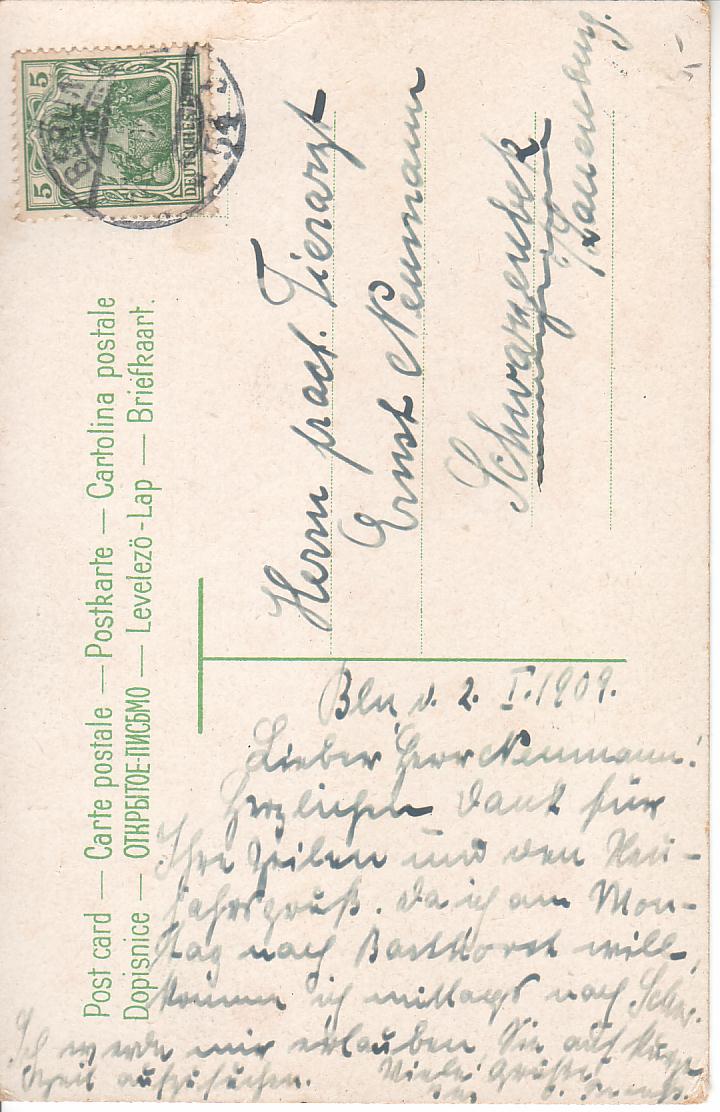 Post card — Carte postale — Postkarte — Cartolina postale
Dopisnice — ОТКРЫТОЕ-ПИСЬМО — Levelező-Lap — Briefkaart.
5
5
DEUTSCHES
BERLIN
54
Herrn pract. Tierarzt
Ernst Neumann
Schwarzenbek
Lauenburg.
Bln, d. 2. I. 1909.
Lieber Herr Neumann!
Herzlichen Dank für
Ihre Zeilen und den Neu-
jahrsgruß. Da ich am Mon-
tag nach Basthorst will,
komme ich mittags nach Schw.
Ich werde mir erlauben, Sie auf kurze
Zeit aufzusuchen. Viele Grüße